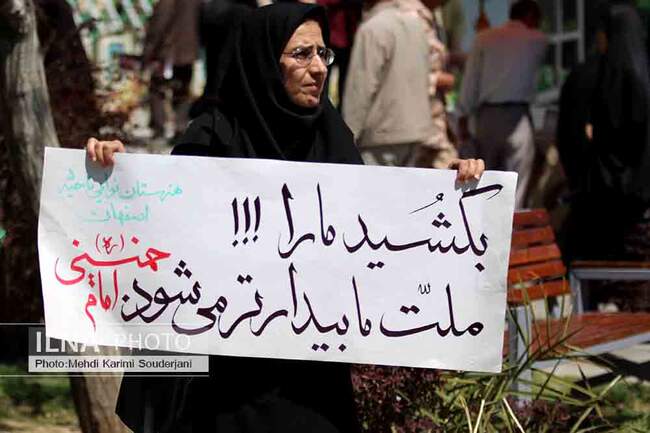 هنرستان ناحیه
اصفهان
بکُشید ما را !!!
ملّت ما بیدارتر می شود.
امام خمینی (ره)
ILNA PHOTO
Photo:Mehdi Karimi Souderjani